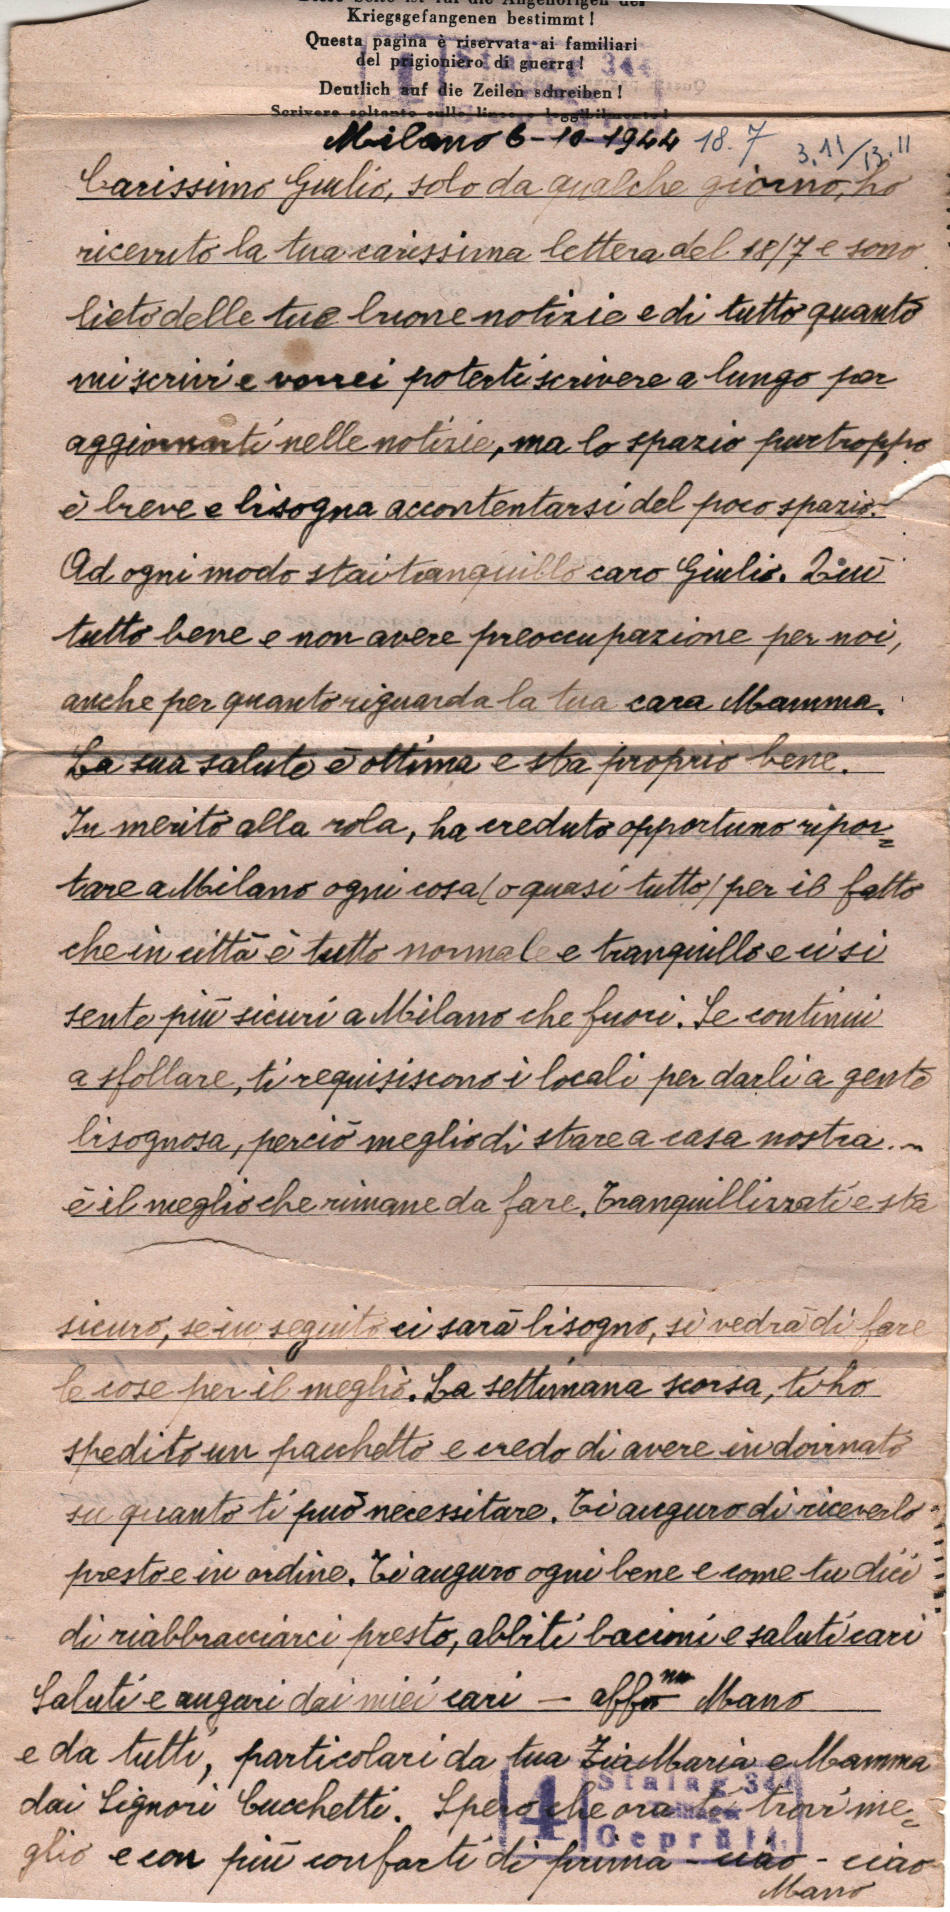 Diese Seite ist für die Angehörigen des
Kriegsgefangenen bestimmt!
Questa pagina è riservata ai familiari
del prigioniero di guerra!
Deutlich auf die Zeilen schreiben!
Scrivere soltanto sulle linee e leggibilmente!
Stalag 344
Milano 6-10-1944 18.7 3.11/13.11
Carissimo Giulio, solo da qualche giorno, ho
ricevuto la tua carissima lettera del 18/7 e sono
lieto delle tue buone notizie e di tutto quanto
mi scrivi e vorrei poterti scrivere a lungo per
aggiornarti nelle notizie, ma lo spazio purtroppo
è breve e bisogna accontentarsi del poco spazio.
Ad ogni modo stai tranquillo caro Giulio. Qui
tutto bene e non avere preoccupazione per noi,
anche per quanto riguarda la tua cara Mamma.
La sua salute è ottima e sta proprio bene.
In merito alla roba, ha creduto opportuno ripor=
tare a Milano ogni cosa (o quasi tutto) per il fatto
che in città è tutto normale e tranquillo e ci si
sente più sicuri a Milano che fuori. Se continui
a sfollare, ti requisiscono i locali per darli a gente
bisognosa, perciò meglio di stare a casa nostra. ~
è il meglio che rimane da fare. Tranquillizzati e sta
sicuro, se in seguito ci sarà bisogno, si vedrà di fare
le cose per il meglio. La settimana scorsa, ti ho
spedito un pacchetto e credo di avere indovinato
su quanto ti può necessitare. Ti auguro di riceverlo
presto e in ordine. Ti auguro ogni bene e come tu dici
di riabbracciarci presto, abbiti bacioni e saluti cari
Saluti e auguri dai miei cari - affmo Mano
e da tutti, particolari da tua Zia Maria e Mamma
dai Signori Cucchetti. Spero che ora ti trovi me=
glio e con più conforti di prima - ciao - ciao
Mano
4
Stalag 344
Geprüft